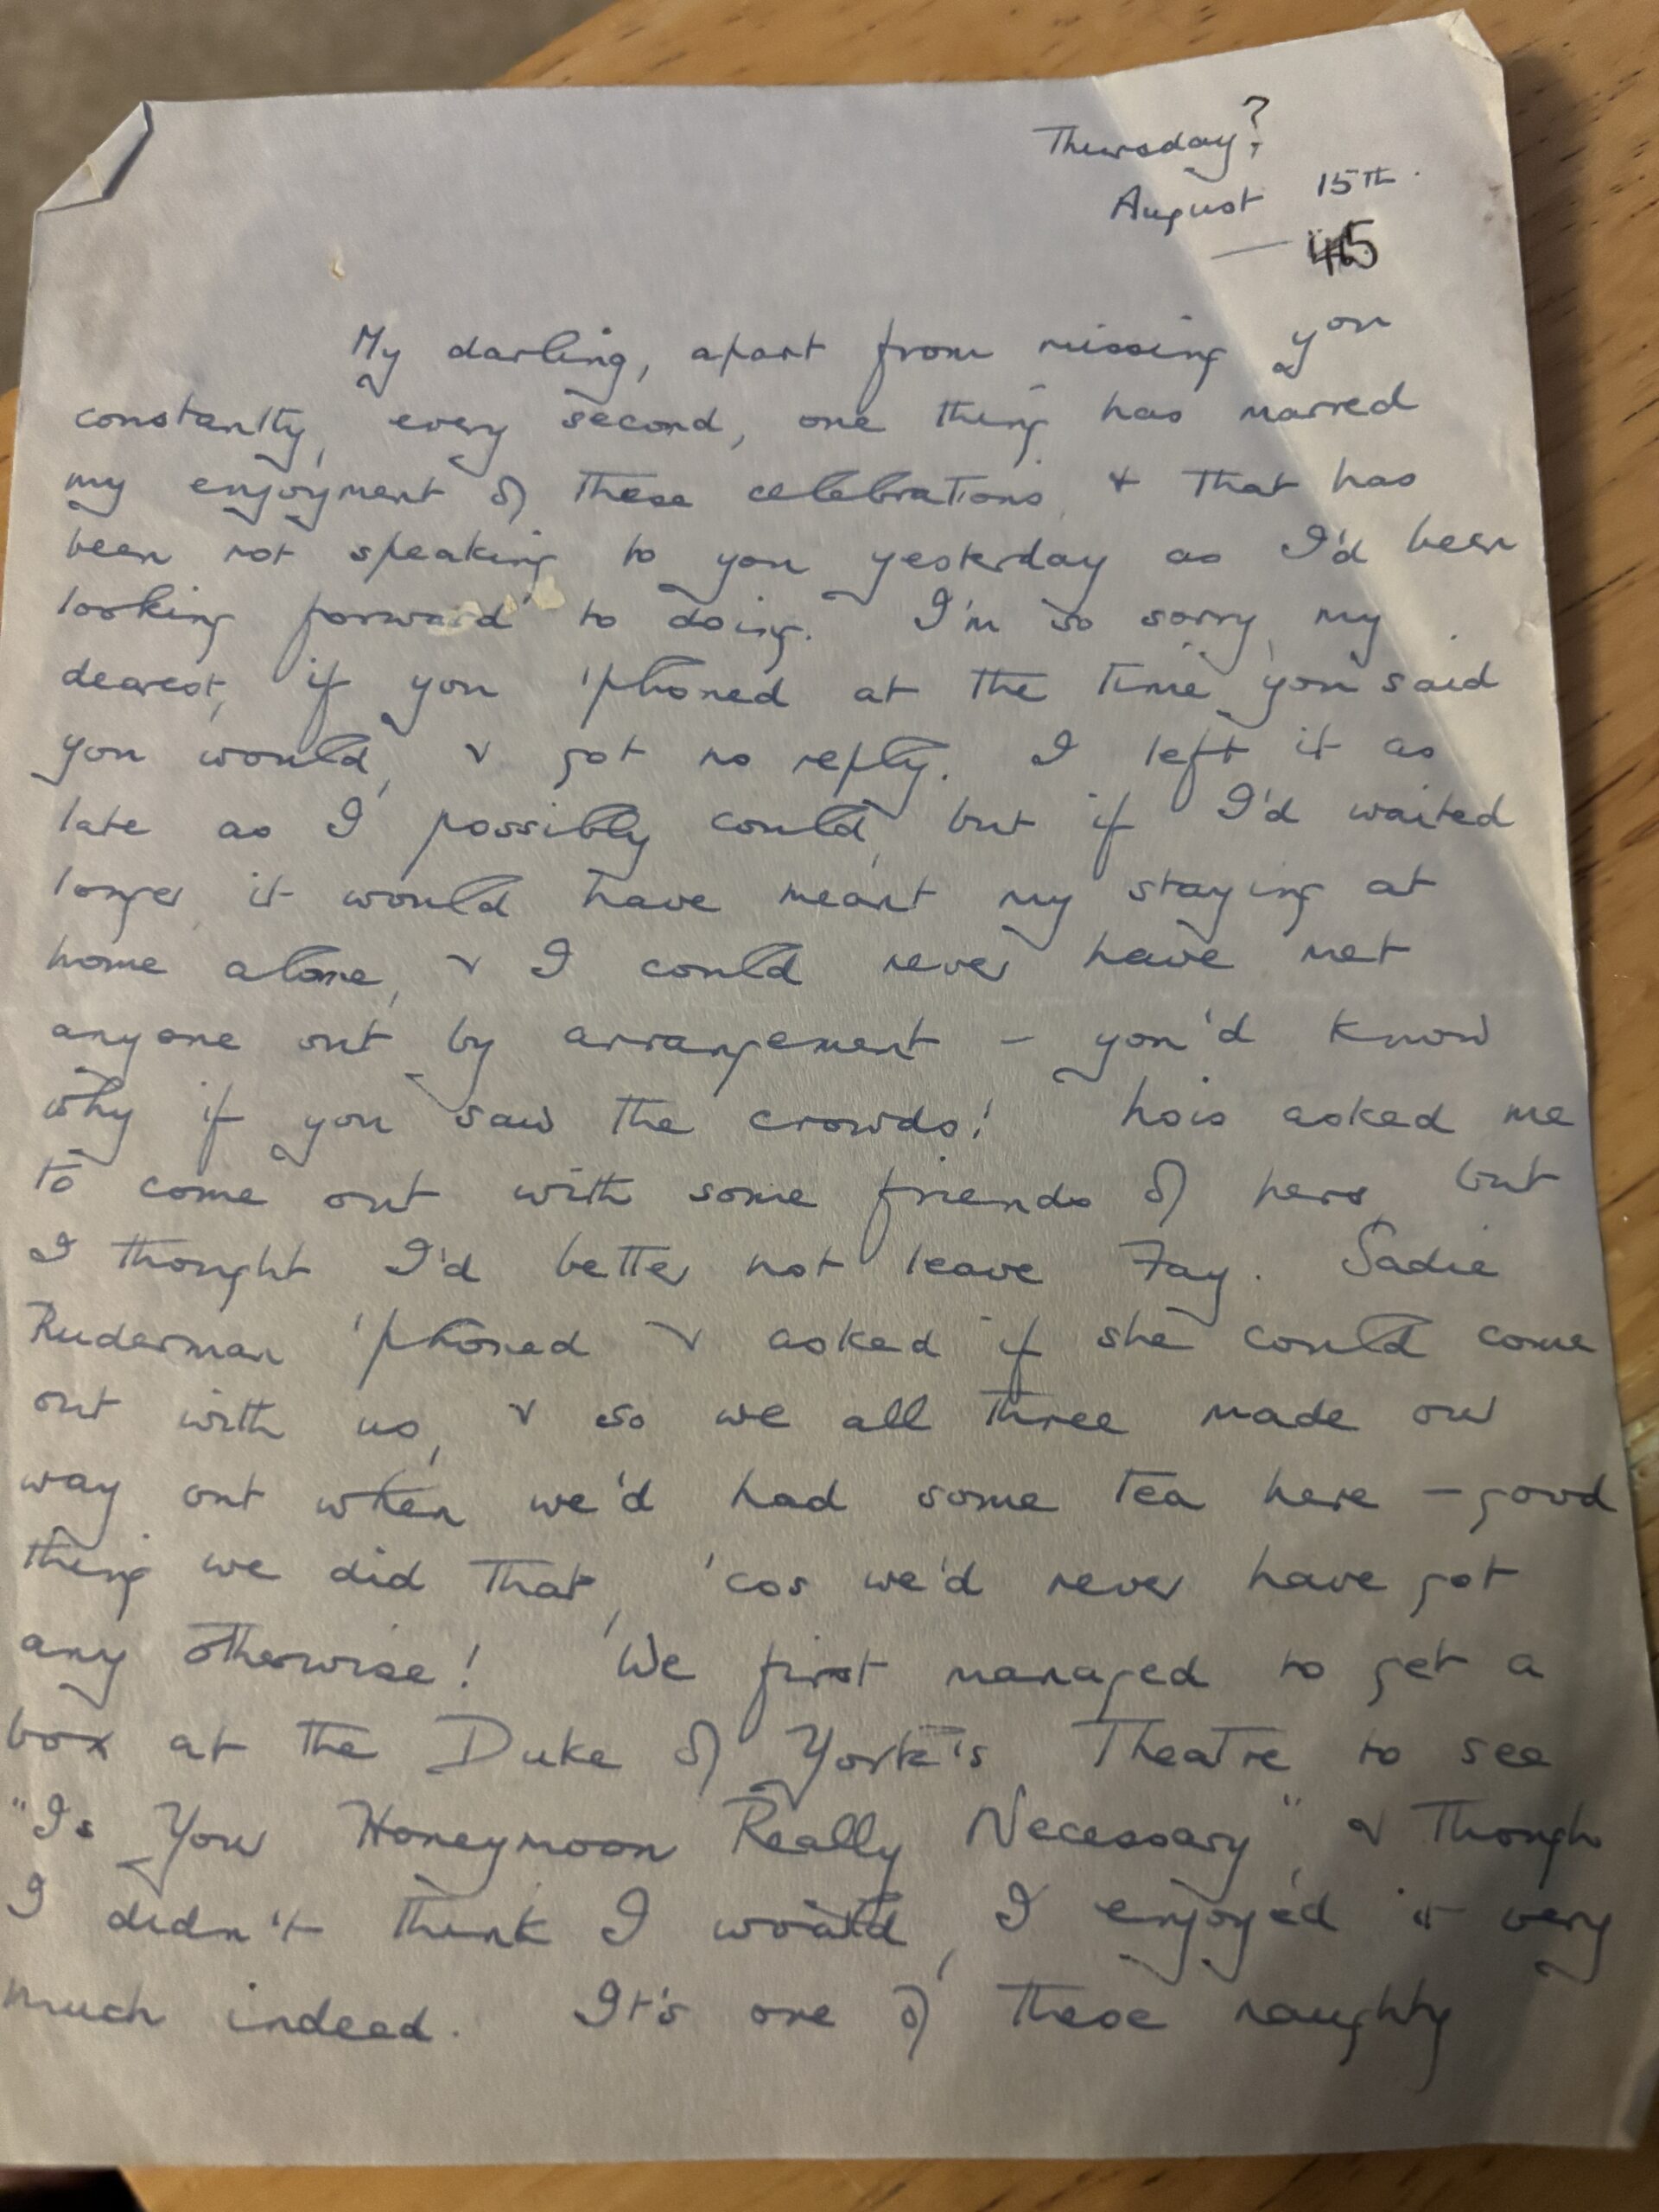 Thursday?
August 15th.
— 45
My darling, apart from missing you
constantly, every second, one thing has marred
my enjoyment of these celebrations, & that has
been not speaking to you yesterday as I'd been
looking forward to doing. I'm so sorry, my
dearest, if you 'phoned at the time you said
you would, & got no reply. I left it as
late as I possibly could, but if I'd waited
longer it would have meant my staying at
home alone, & I could never have met
anyone out by arrangement – you'd know
why if you saw the crowds! Lois asked me
to come out with some friends of hers, but
I thought I'd better not leave Fay. Sadie
Ruderman 'phoned & asked if she could come
out with us, & so we all three made our
way out when we'd had some tea here – good
thing we did that, 'cos we'd never have got
any otherwise! We first managed to get a
box at the Duke of York's Theatre to see
"Is Your Honeymoon Really Necessary", & though
I didn't think I would, I enjoyed it very
much indeed. It's one of these naughty